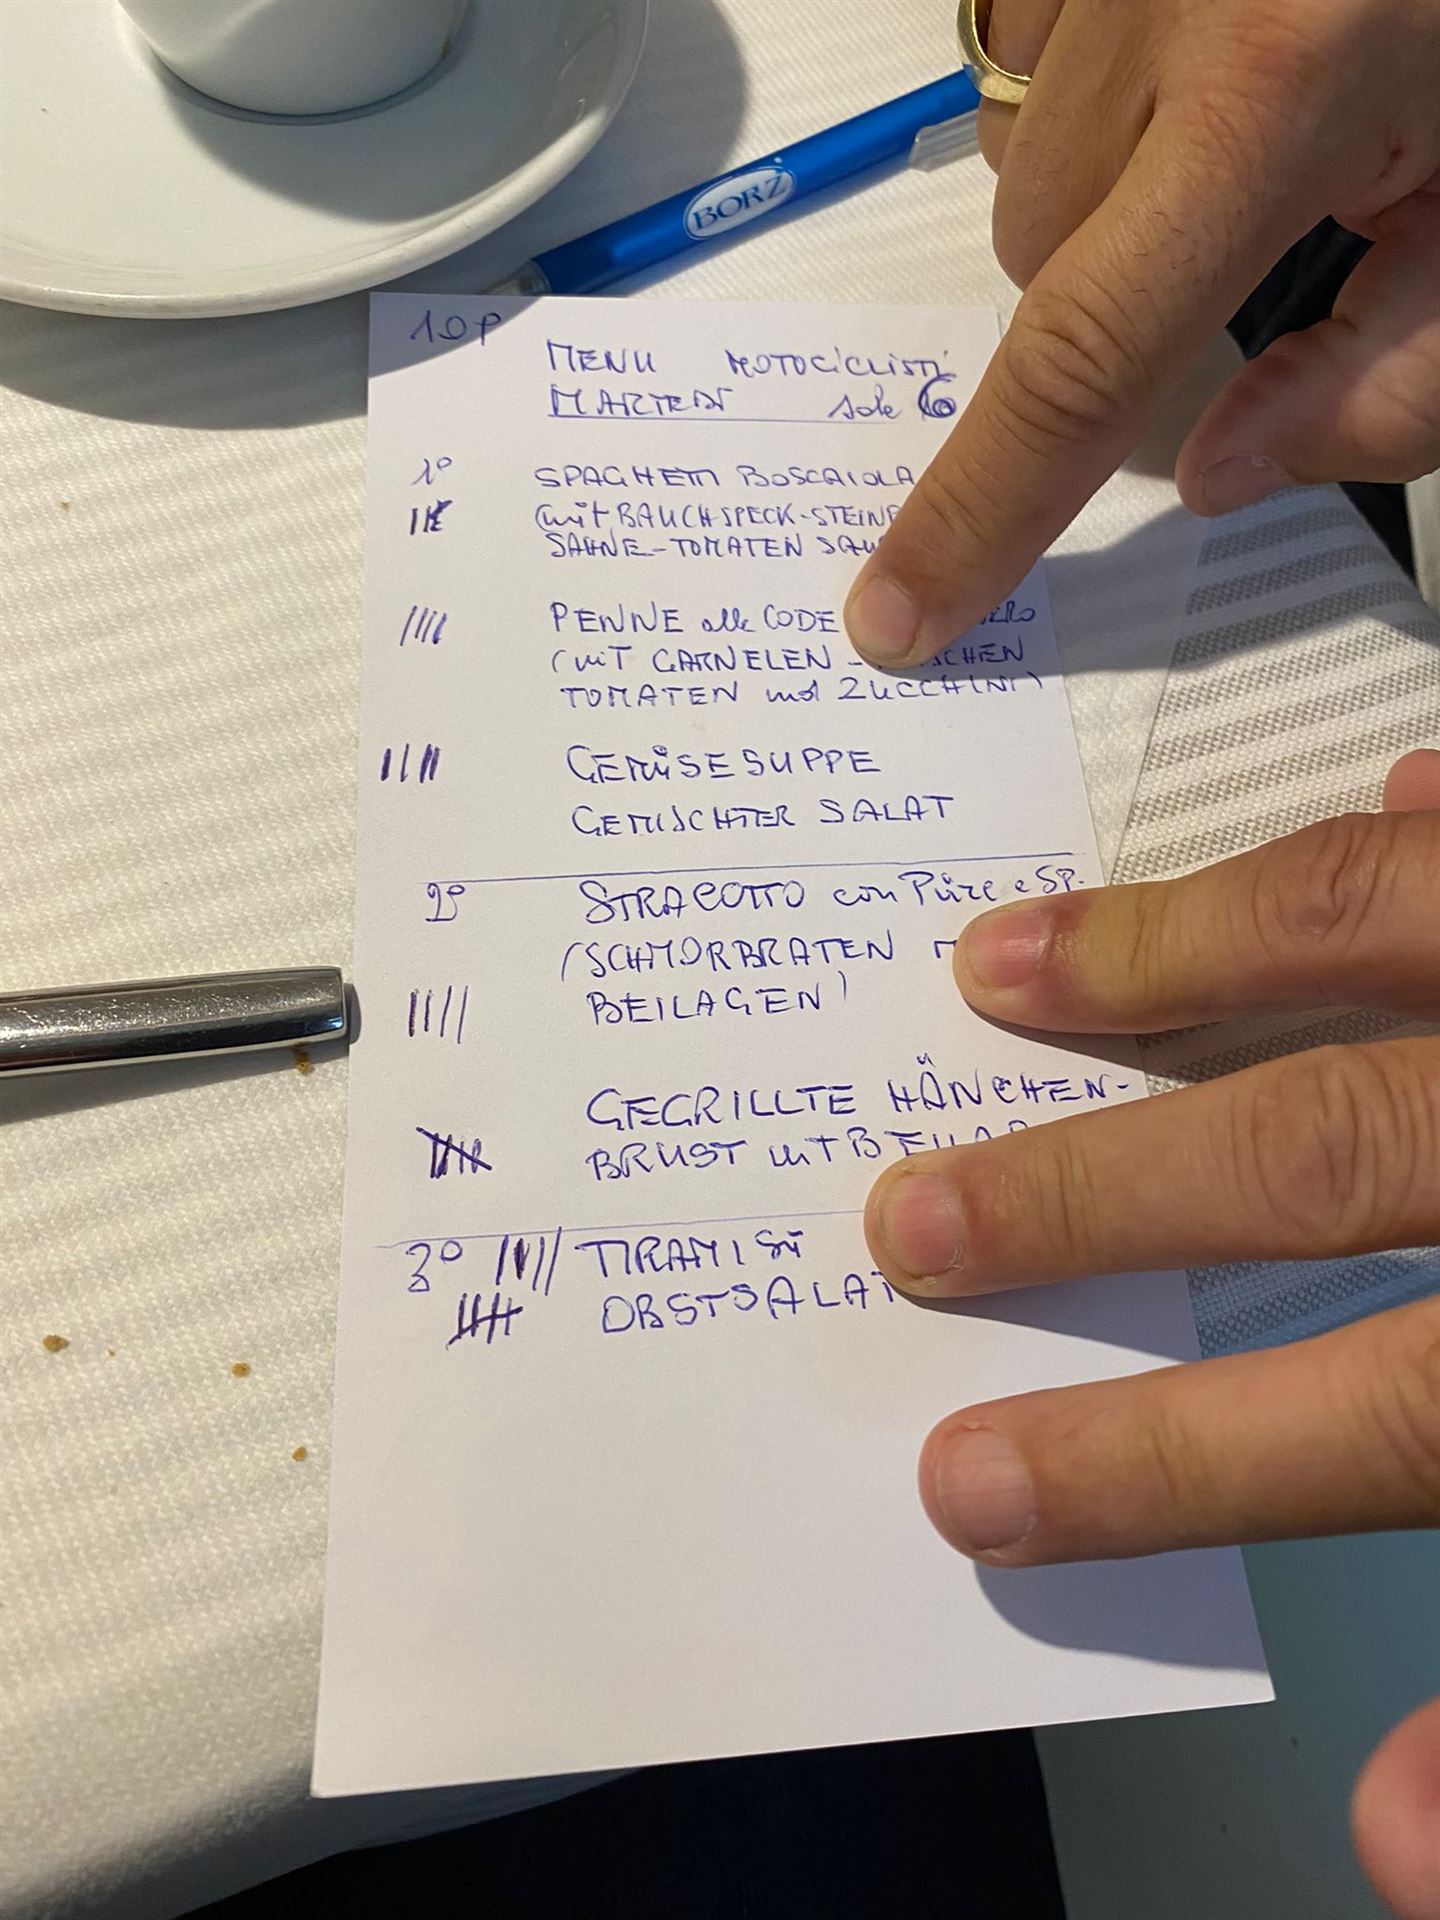 BORZ
10P
MENU MOTOCICLISTI
MARTEDI sole 6
1° SPAGHETTI BOSCAIOLA
(mit BAUCHSPECK-STEINP
SAHNE-TOMATEN SAU
PENNE alle CODE
(mit GARNELEN - SCHEN
TOMATEN und ZUCCHINI)
GEMÜSESUPPE
GEMISCHTER SALAT
2° STRACOTTO con Püre e SP.
(SCHMORBRATEN M
BEILAGEN)
GEGRILLTE HÄNCHEN-
BRUST mit BEILAG
3° TIRAMISÙ
OBSTSALAT